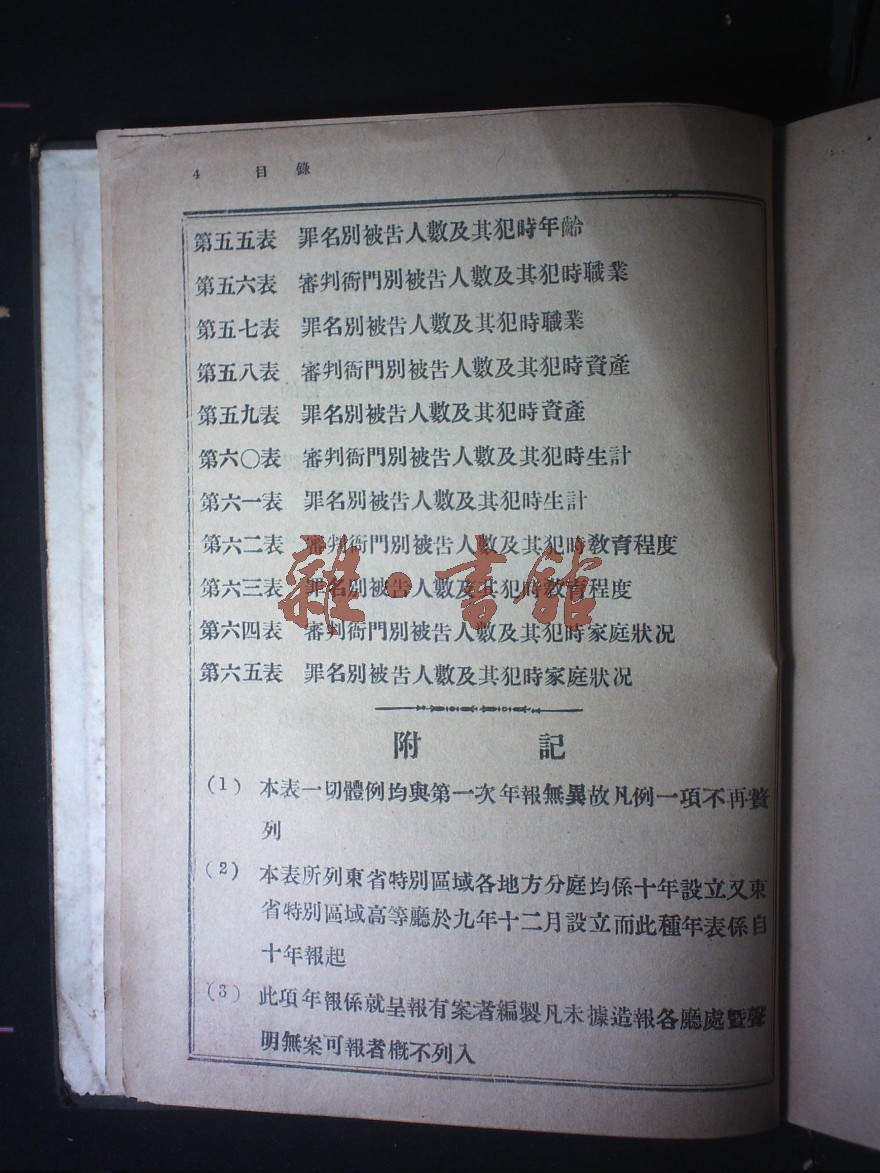 4 目錄
第五五表 罪名別被告人數及其犯時年齡
第五六表 審判衙門別被告人數及其犯時職業
第五七表 罪名別被告人數及其犯時職業
第五八表 審判衙門別被告人數及其犯時資產
第五九表 罪名別被告人數及其犯時資產
第六〇表 審判衙門別被告人數及其犯時生計
第六一表 罪名別被告人數及其犯時生計
第六二表 審判衙門別被告人數及其犯時教育程度
第六三表 罪名別被告人數及其犯時教育程度
雜·書館
第六四表 審判衙門別被告人數及其犯時家庭狀況
第六五表 罪名別被告人數及其犯時家庭狀況
附記
(1) 本表一切體例均與第一次年報無異故凡例一項不再贅
列
(2) 本表所列東省特別區域各地方分庭均係十年設立又東
省特別區域高等廳於九年十二月設立而此種年表係自
十年報起
(3) 此項年報係就呈報有案者編製凡未據造報各廳處曁聲
明無案可報者概不列入